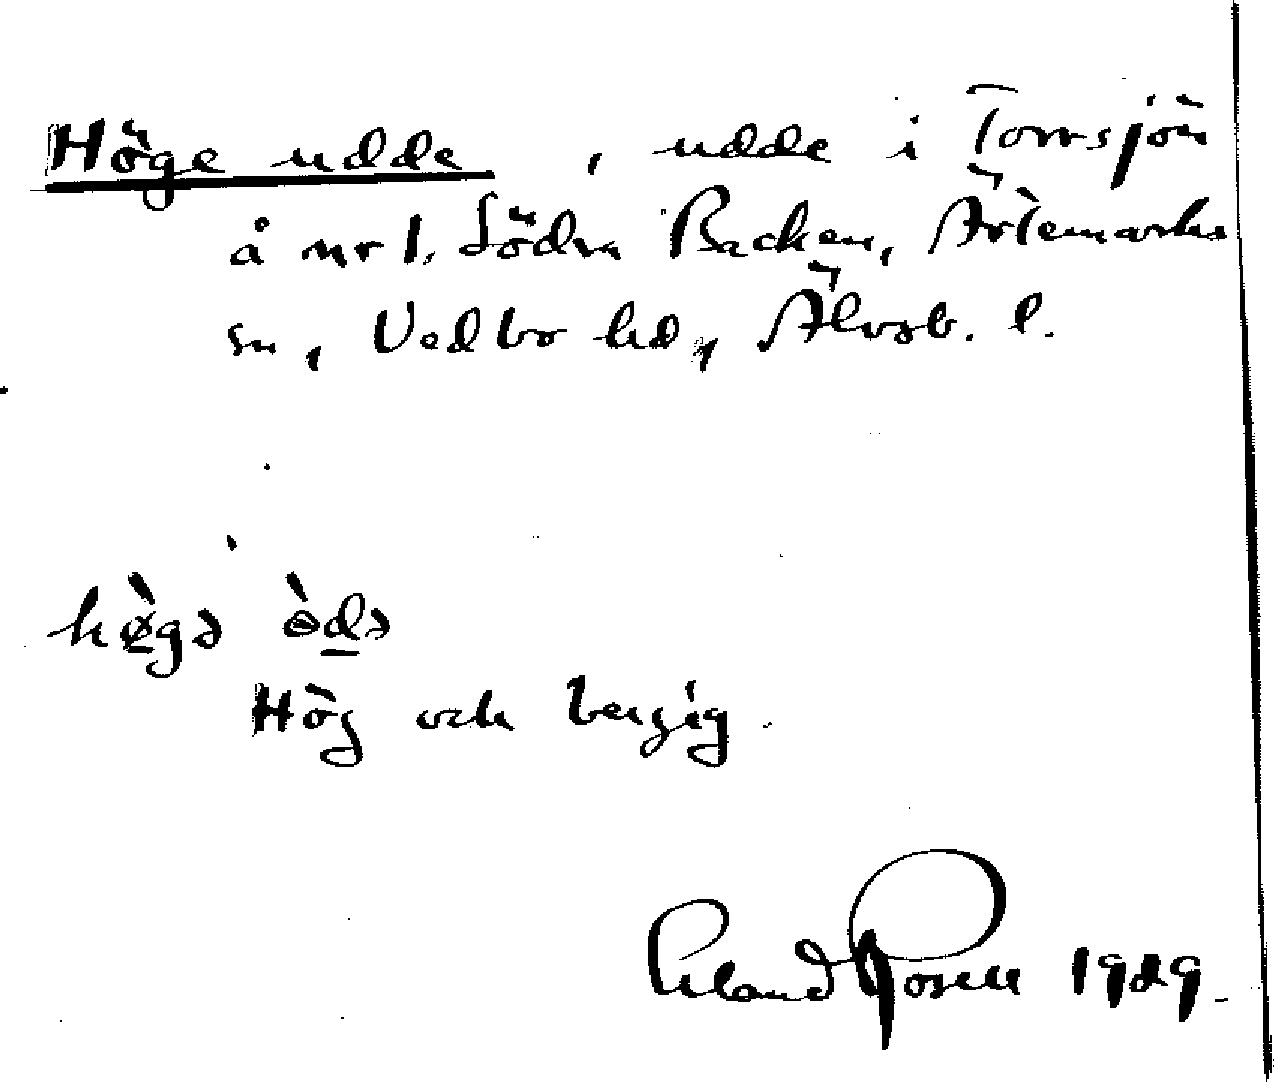 Höge udde, udde i Tornsjön
å nr 1, Södra Backen, Ärtemarks
sn, Vedbo hd, Älvsb. l.
hø̀gə òdə
Hög och bergig.
Erland Rosell 1929.